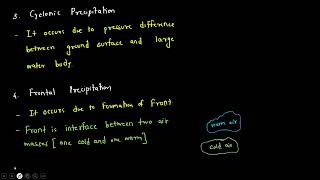 3. Cyclonic Precipitation
- It occurs due to pressure difference
between ground surface and large
water body.
4. Frontal Precipitation
- It occurs due to Formation of Front
- Front is interface between two air
masses [one cold and one warm]
warm air
cold air